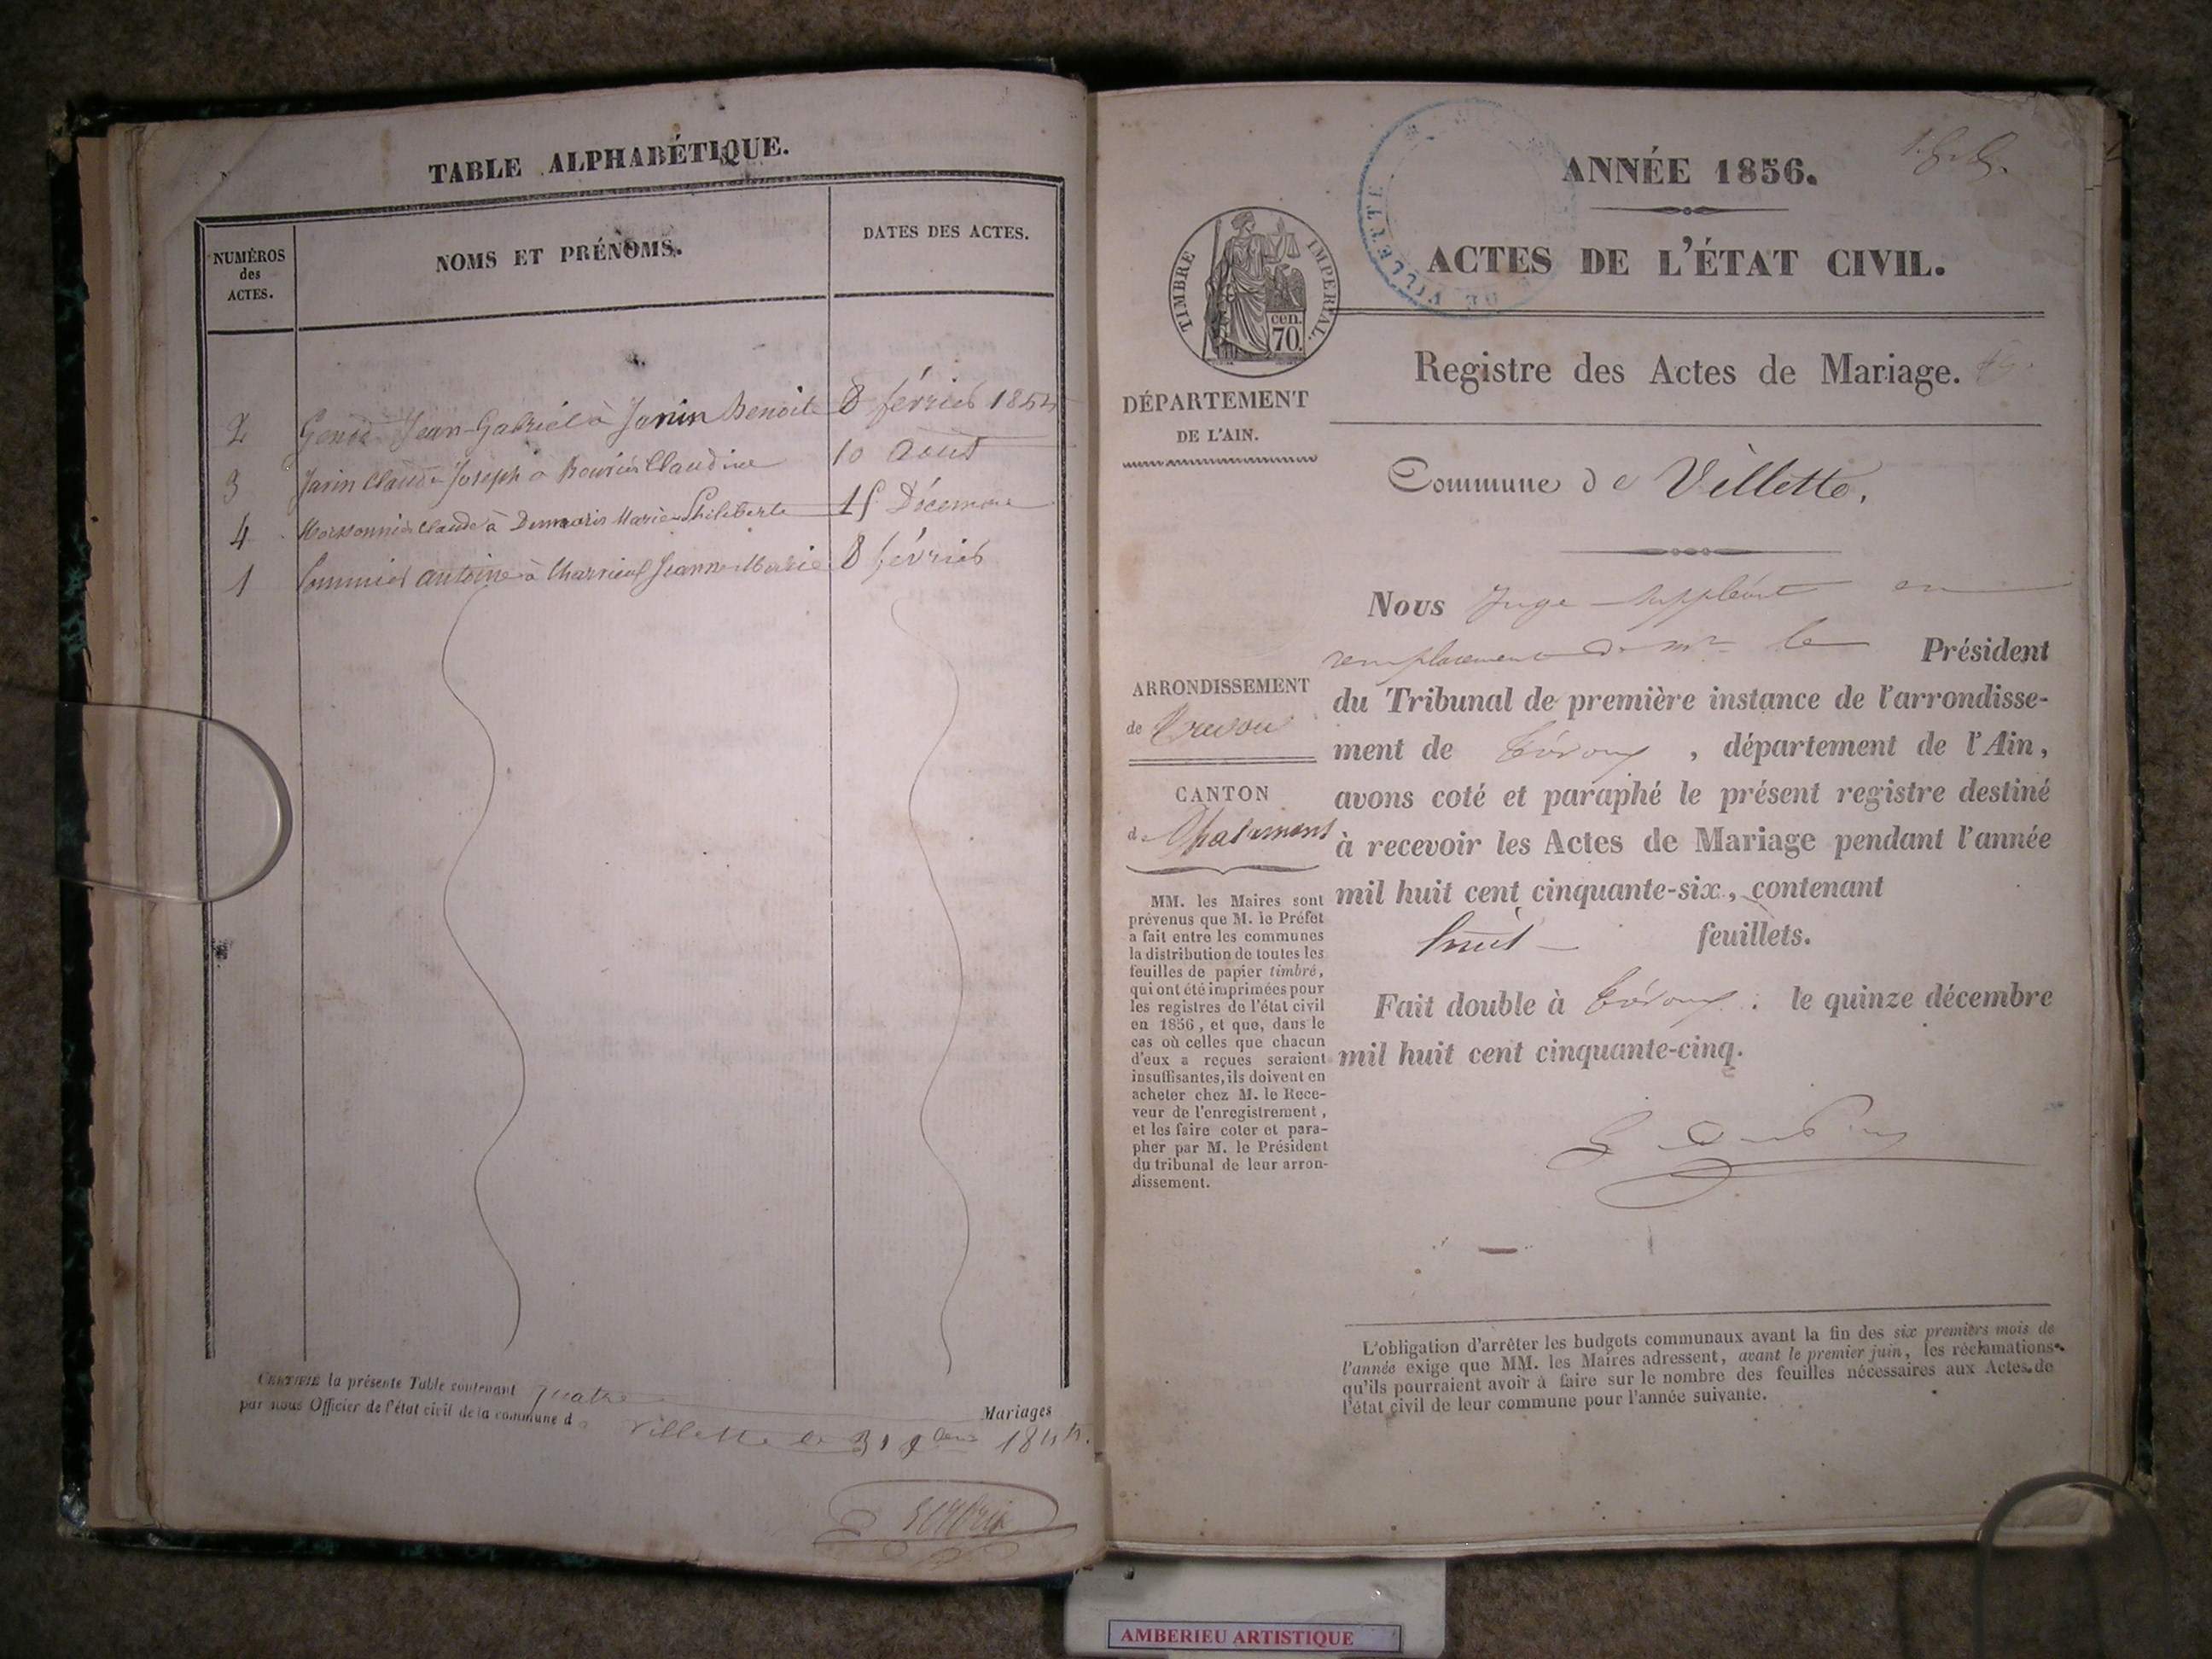 TABLE ALPHABÉTIQUE.
NUMÉROS
des
ACTES.
NOMS ET PRÉNOMS.
DATES DES ACTES.
2 Jean-Gabriel à Janin Benoite 8 février
3 Janin Claude Joseph à Claudine 10 Aout
4 Claude à Marie Philiberte 15 Décembre
1 Antoine à Jeanne-Marie 8 février
CERTIFIÉ la présente Table contenant quatre Mariages
par nous Officier de l'état civil de la commune d
Villette le 31
ANNÉE 1856.
ACTES DE L'ÉTAT CIVIL.
DE VILLETTE
TIMBRE IMPERIAL.
cen.
70.
Registre des Actes de Mariage.
DÉPARTEMENT
DE L'AIN.
Commune de Villette,
Nous Juge suppléant en
remplacement de Mr le Président
du Tribunal de première instance de l'arrondisse-
ment de Trévoux, département de l'Ain,
avons coté et paraphé le présent registre destiné
à recevoir les Actes de Mariage pendant l'année
mil huit cent cinquante-six, contenant
huit feuillets.
Fait double à Trévoux, le quinze décembre
mil huit cent cinquante-cinq.
ARRONDISSEMENT
de Trevoux
CANTON
de Chalamont
MM. les Maires sont
prévenus que M. le Préfet
a fait entre les communes
la distribution de toutes les
feuilles de papier timbré,
qui ont été imprimées pour
les registres de l'état civil
en 1856, et que, dans le
cas où celles que chacun
d'eux a reçues seraient
insuffisantes, ils doivent en
acheter chez M. le Rece-
veur de l'enregistrement,
et les faire coter et para-
pher par M. le Président
du tribunal de leur arron-
dissement.
L'obligation d'arrêter les budgets communaux avant la fin des six premiers mois de
l'année exige que MM. les Maires adressent, avant le premier juin, les réclamations
qu'ils pourraient avoir à faire sur le nombre des feuilles nécessaires aux Actes de
l'état civil de leur commune pour l'année suivante.
AMBERIEU ARTISTIQUE